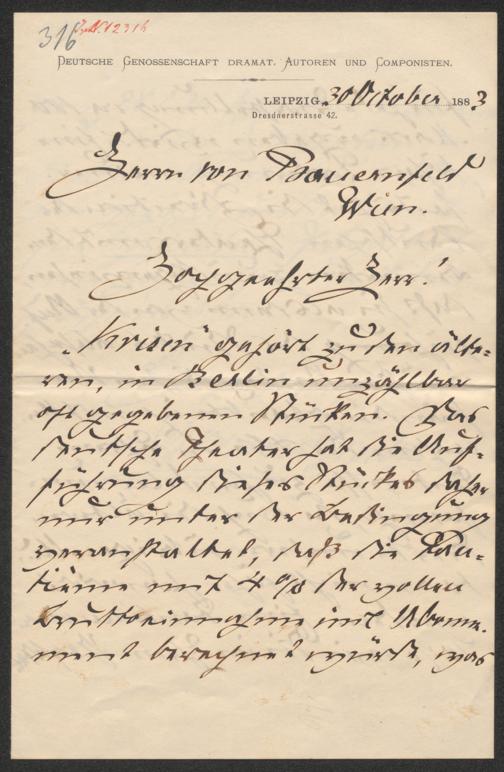 316
DEUTSCHE GENOSSENSCHAFT DRAMAT. AUTOREN UND COMPONISTEN.
LEIPZIG, 30 October 1883
Dresdnerstrasse 42.
Herrn von Bauernfeld
Wien.
Hochgeehrter Herr!
„Krisen“ gehört zu den älte-
ren, in Berlin unzählbar
oft gegebenen Stücken. Das
deutsche Theater hat die Auf-
führung dieses Stückes daher
nur unter der Bedingung
veranstaltet, daß die Tan-
tième mit 4 % der vollen
Bruttoeinnahme incl Abonne-
ment berechnet würde, was